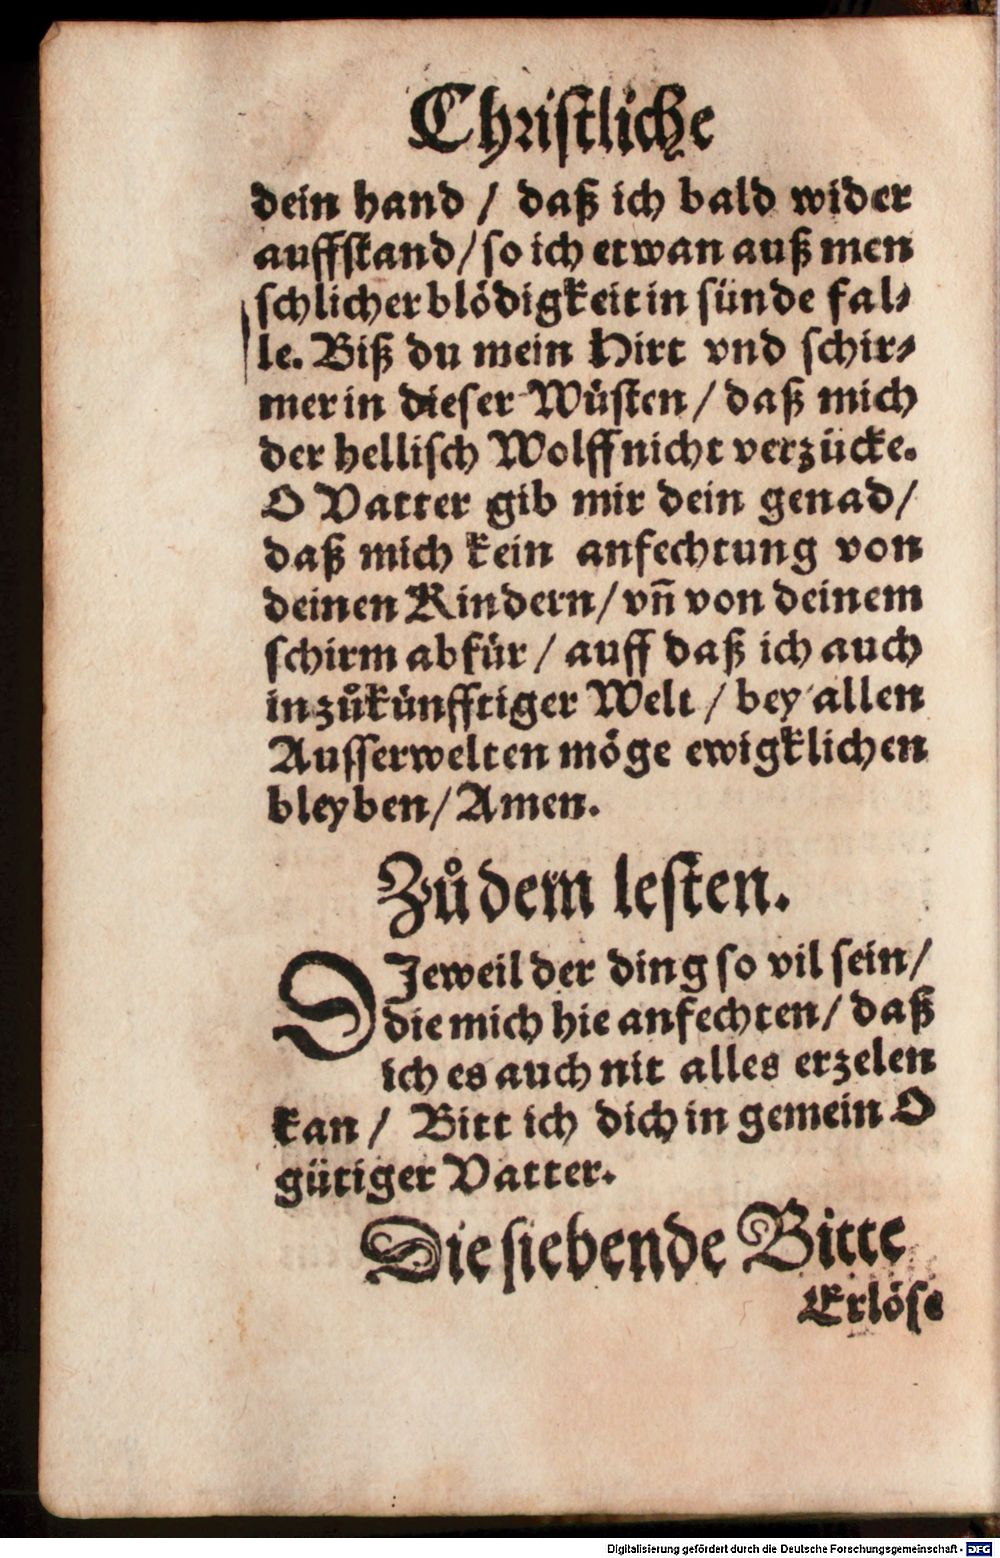 Christliche
dein hand / daß ich bald wider
auffstand / so ich etwan auß men
schlicher blödigkeit in sünde fal⸗
le. Biß du mein Hirt vnd schir⸗
mer in dieser Wüsten / daß mich
der hellisch Wolff nicht verzücke.
O Vatter gib mir dein genad /
daß mich kein anfechtung von
deinen Kindern / vñ von deinem
schirm abfür / auff daß ich auch
in zůkünfftiger Welt / bey allen
Ausserwelten möge ewigklichen
bleyben / Amen.
Zů dem lesten.
DJeweil der ding so vil sein /
die mich hie anfechten / daß
ich es auch nit alles erzelen
kan / Bitt ich dich in gemein O
gütiger Vatter.
Die siebende Bitte
Erlöse
Digitalisierung gefördert durch die Deutsche Forschungsgemeinschaft - DFG